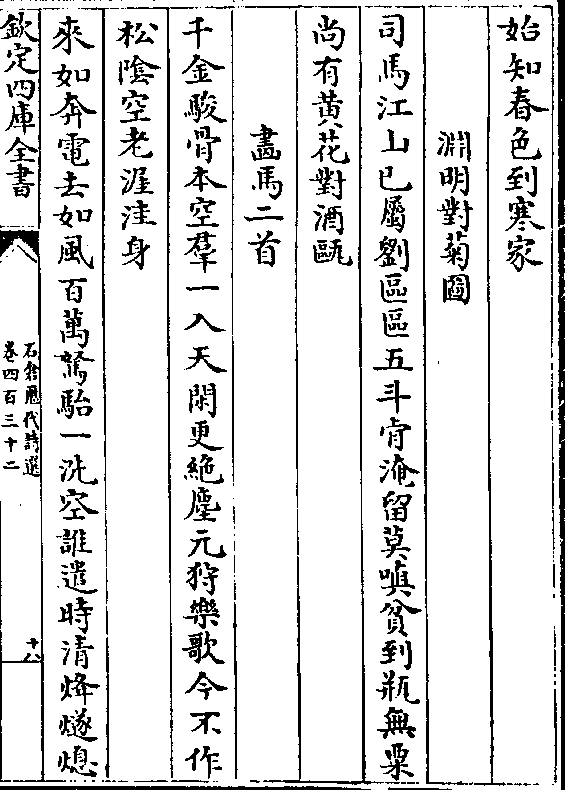 始知春色到寒家
淵明對菊圖
司馬江山已屬劉區區五斗肯淹留莫嗔貧到瓶無粟
尚有黄花對酒甌
畫馬二首
千金駿骨本空羣一入天閑更絶塵元狩樂歌今不作
松陰空老渥洼身
來如奔電去如風百萬駑駘一洗空誰遣時清烽燧熄
欽定四庫全書
石倉歷代詩選
卷四百三十二
十八